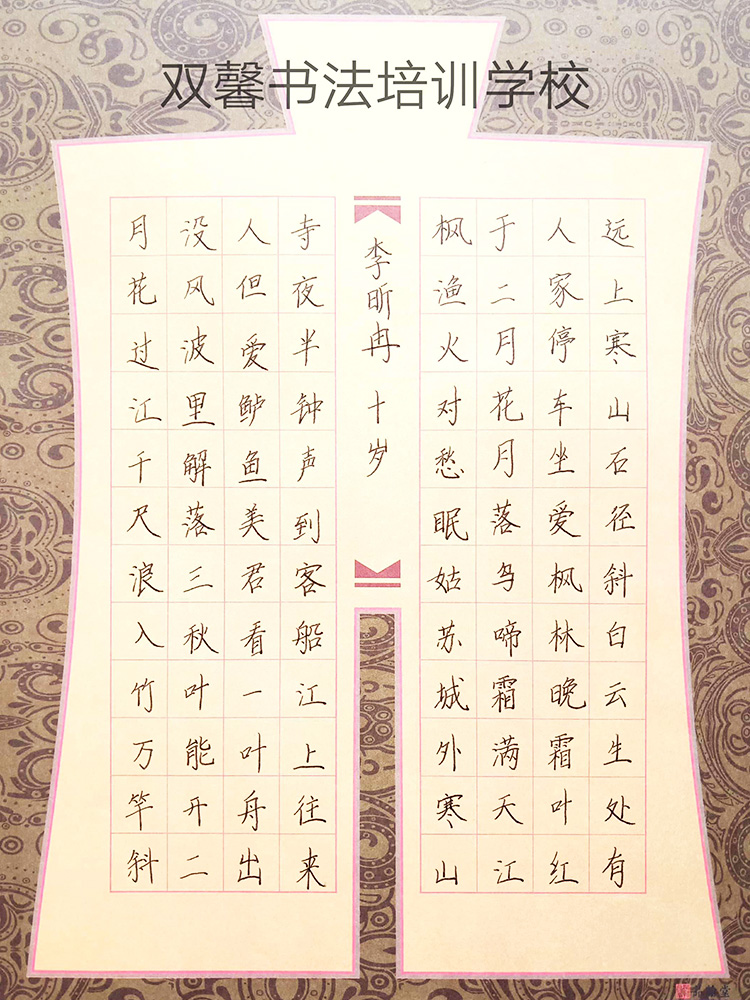 双馨书法培训学校
远上寒山石径斜白云生处有
人家停车坐爱枫林晚霜叶红
于二月花月落乌啼霜满天江
枫渔火对愁眠姑苏城外寒山
李昕冉 十岁
寺夜半钟声到客船江上往来
人但爱鲈鱼美君看一叶舟出
没风波里解落三秋叶能开二
月花过江千尺浪入竹万竿斜